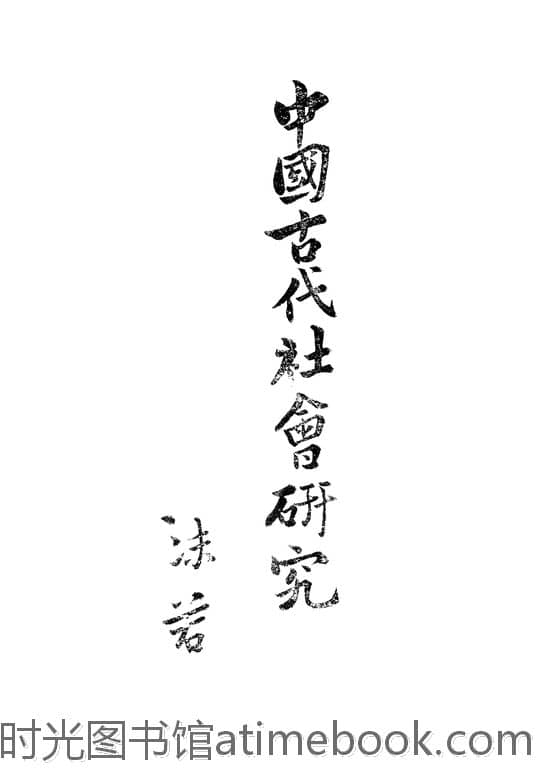 中國古代社會研究
沫若
时光图书馆atimebook.com